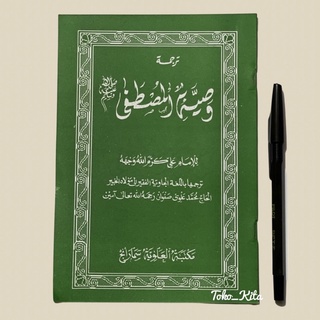 ترجمة
وصية المصطفى ﷺ
للإمام علي كرم الله وجهه
ترجمها باللغة الجاوية الفقير إلى مولاه الخبير
الحاج محمد رحمه الله تعالى آمين
مكتبة العلوية سمارانج
Toko_Kita